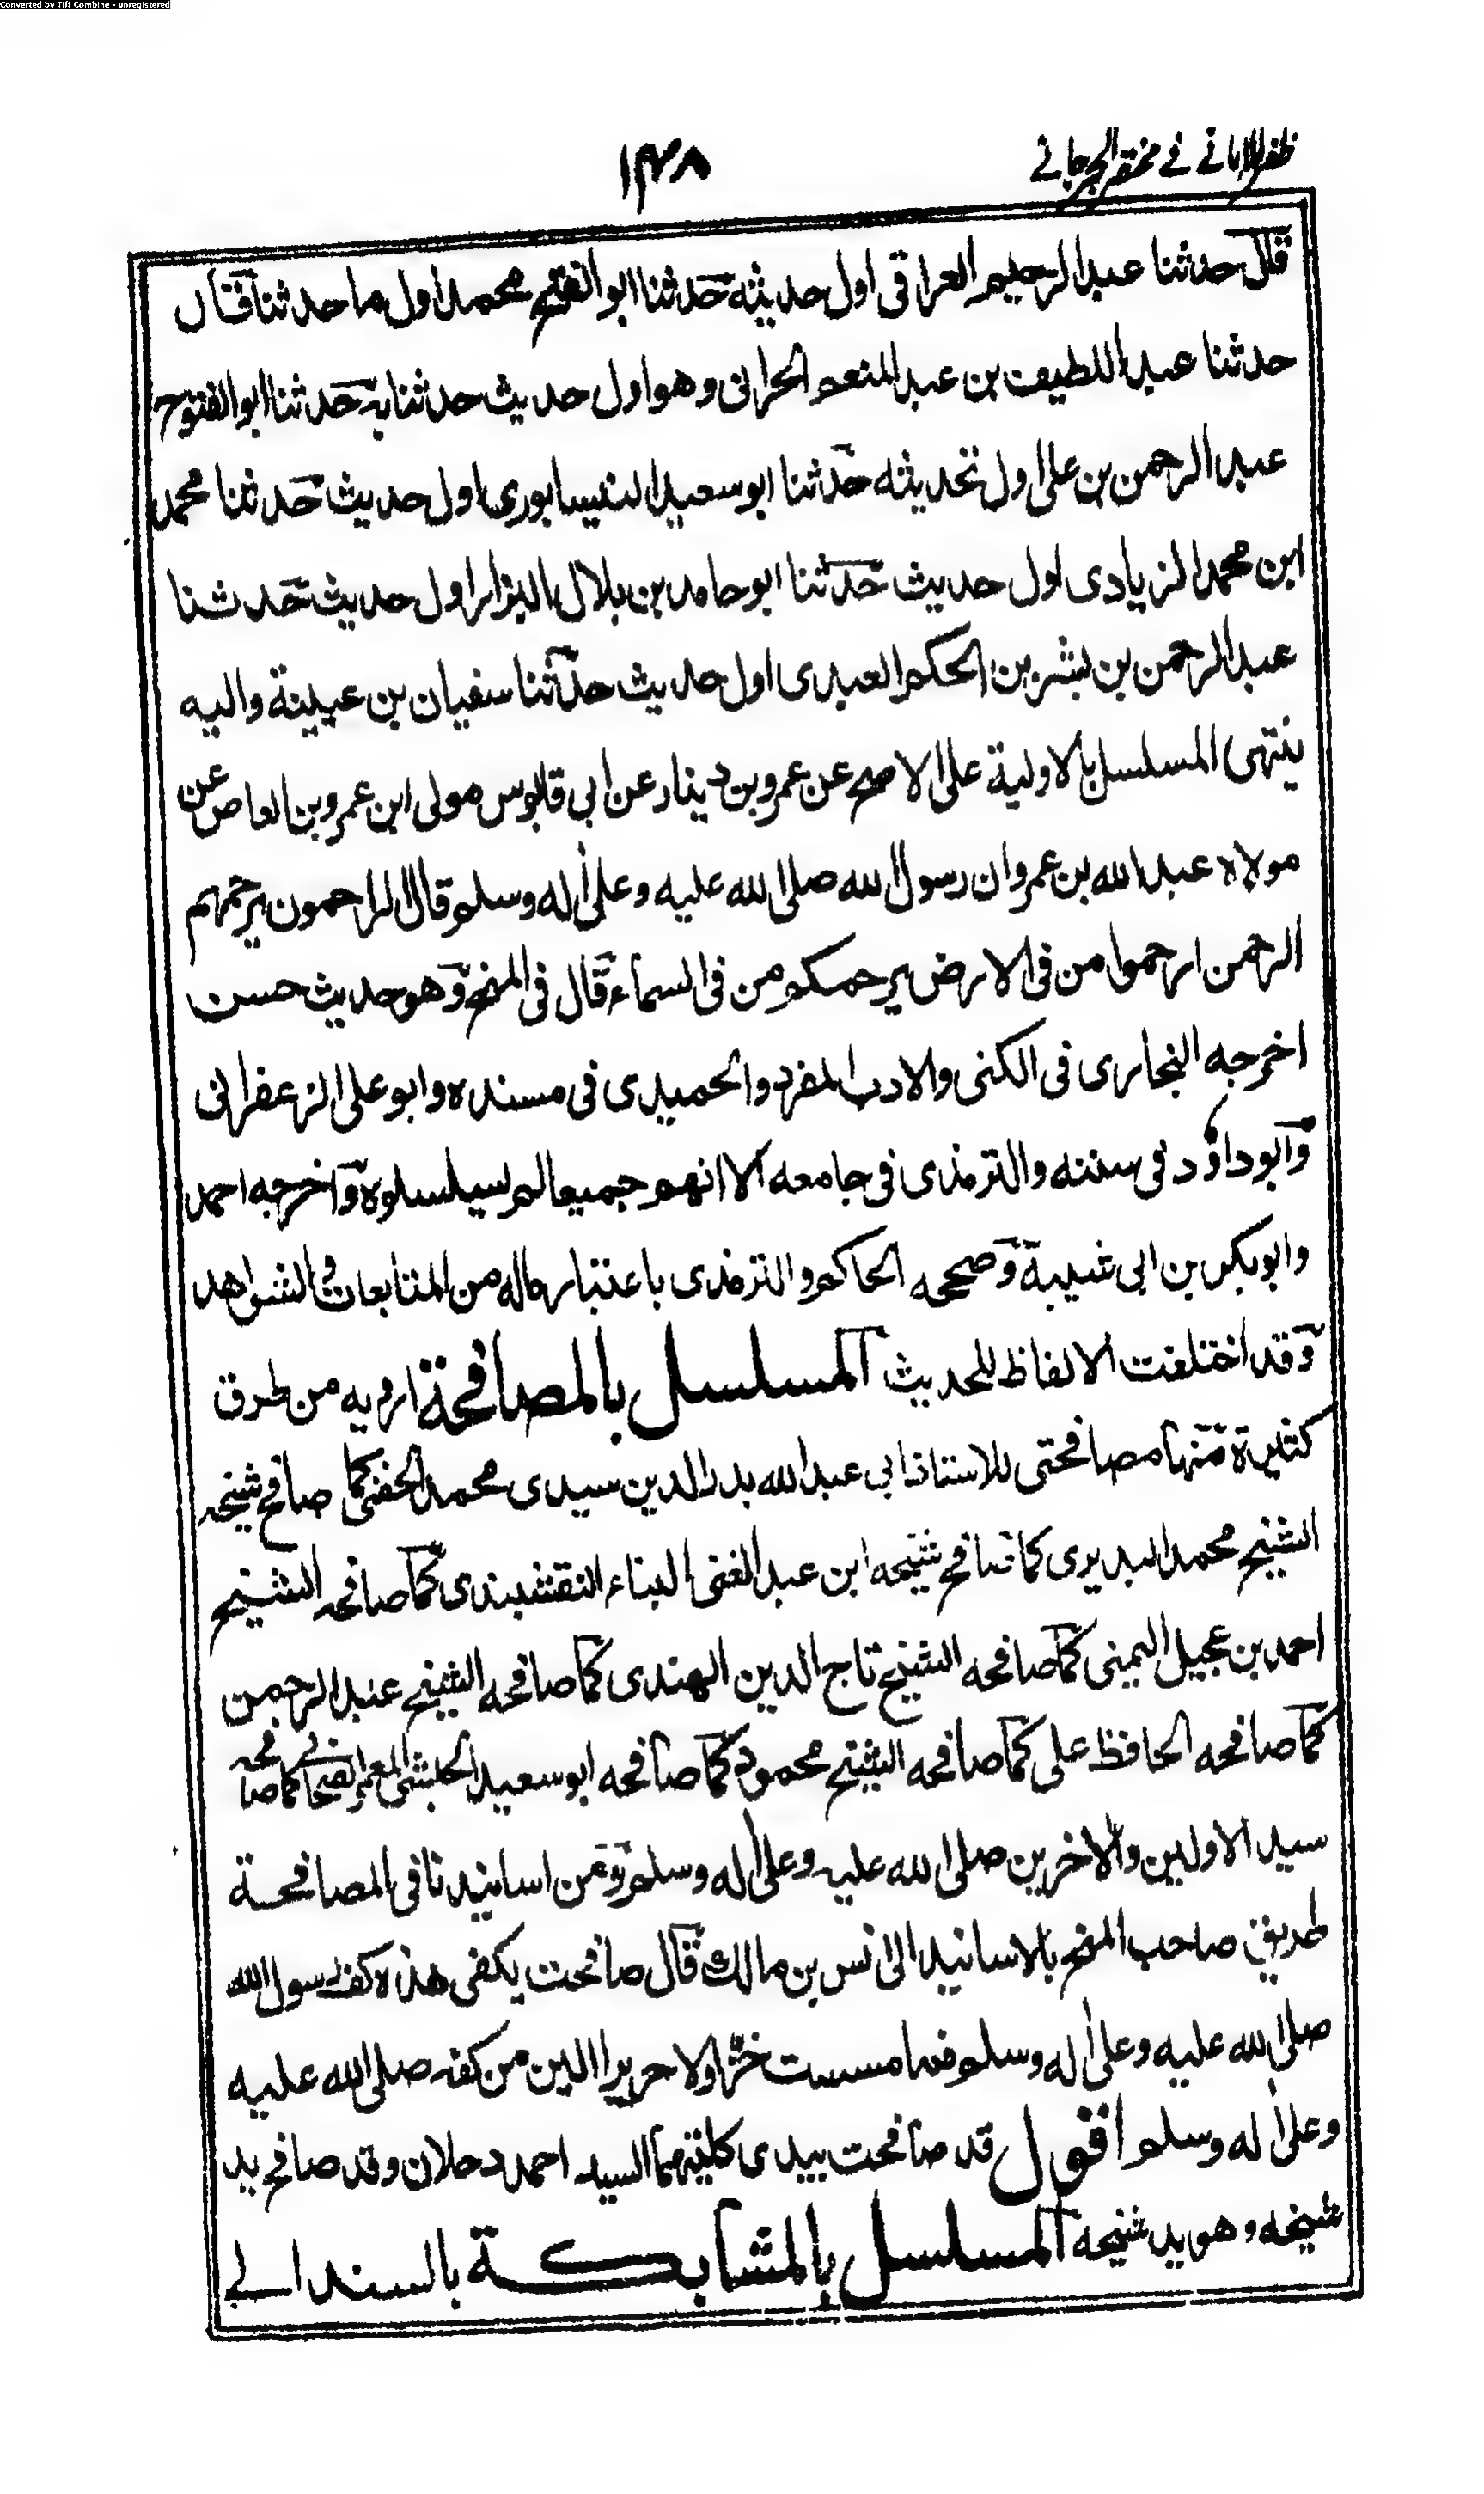 Converted by Tiff Combine - unregistered
ظفر الاماني في مختصر الجرجاني
١٣٨
قال حدثنا عبد الرحيم العراقي اول حديثه حدثنا ابو الفتح محمد اول ما حدثنا قال
حدثنا عبد اللطيف بن عبد المنعم الحراني وهو اول حديث حدثنا به حدثنا ابو الفتوح
عبد الرحمن بن علي اول تحديثه حدثنا ابو سعيد النيسابوري اول حديث حدثنا محمد
ابن محمد الزيادي اول حديث حدثنا ابو حامد بن بلال البزار اول حديث حدثنا
عبد الرحمن بن بشر بن الحكم العبدي اول حديث حدثنا سفيان بن عيينة واليه
ينتهى المسلسل بالاولية على الاصح عن عمرو بن دينار عن ابي قابوس مولى ابن عمرو بن العاص عن
مولاه عبد الله بن عمرو ان رسول الله صلى الله عليه وعلى اله وسلم قال الراحمون يرحمهم
الرحمن ارحموا من في الارض يرحمكم من في السماء قال في المنح وهو حديث حسن
اخرجه البخاري في الكنى والادب المفرد والحميدي في مسنده وابو علي الزعفراني
وابو داود في سننه والترمذي في جامعه الا انهم جميعا لم يسلسلوه واخرجه احمد
وابو بكر بن ابي شيبة وصححه الحاكم والترمذي باعتبار ماله من المتابعات والشواهد
وقد اختلفت الالفاظ للحديث المسلسل بالمصافحة ارويه من طرق
كثيرة منها مصافحتى للاستاذ ابي عبد الله بدر الدين سيدي محمد الحفني كما صافح شيخه
الشيخ محمد البديري كما صافح شيخه ابن عبد الغنى البناء النقشبندي كما صافحه الشيخ
احمد بن عجيل اليمني كما صافحه الشيخ تاج الدين الهندي كما صافحه الشيخ عبد الرحمن
كما صافحه الحافظ علي كما صافحه الشيخ محمود كما صافحه ابو سعيد الحبشي المعمر الصحابي كما صافحه
سيد الاولين والاخرين صلى الله عليه وعلى اله وسلم ومن اسانيدنا في المصافحة
طريق صاحب المنح بالاسانيد الى انس بن مالك قال صافحت بكفى هذه كف رسول الله
صلى الله عليه وعلى اله وسلم فما مسست خزا ولا حريرا الين من كفه صلى الله عليه
وعلى اله وسلم اقول قد صافحت بيدي كلتيهما السيد احمد دحلان وقد صافح بيد
شيخه وهو يد شيخه المسلسل بالمشابكة بالسند الى